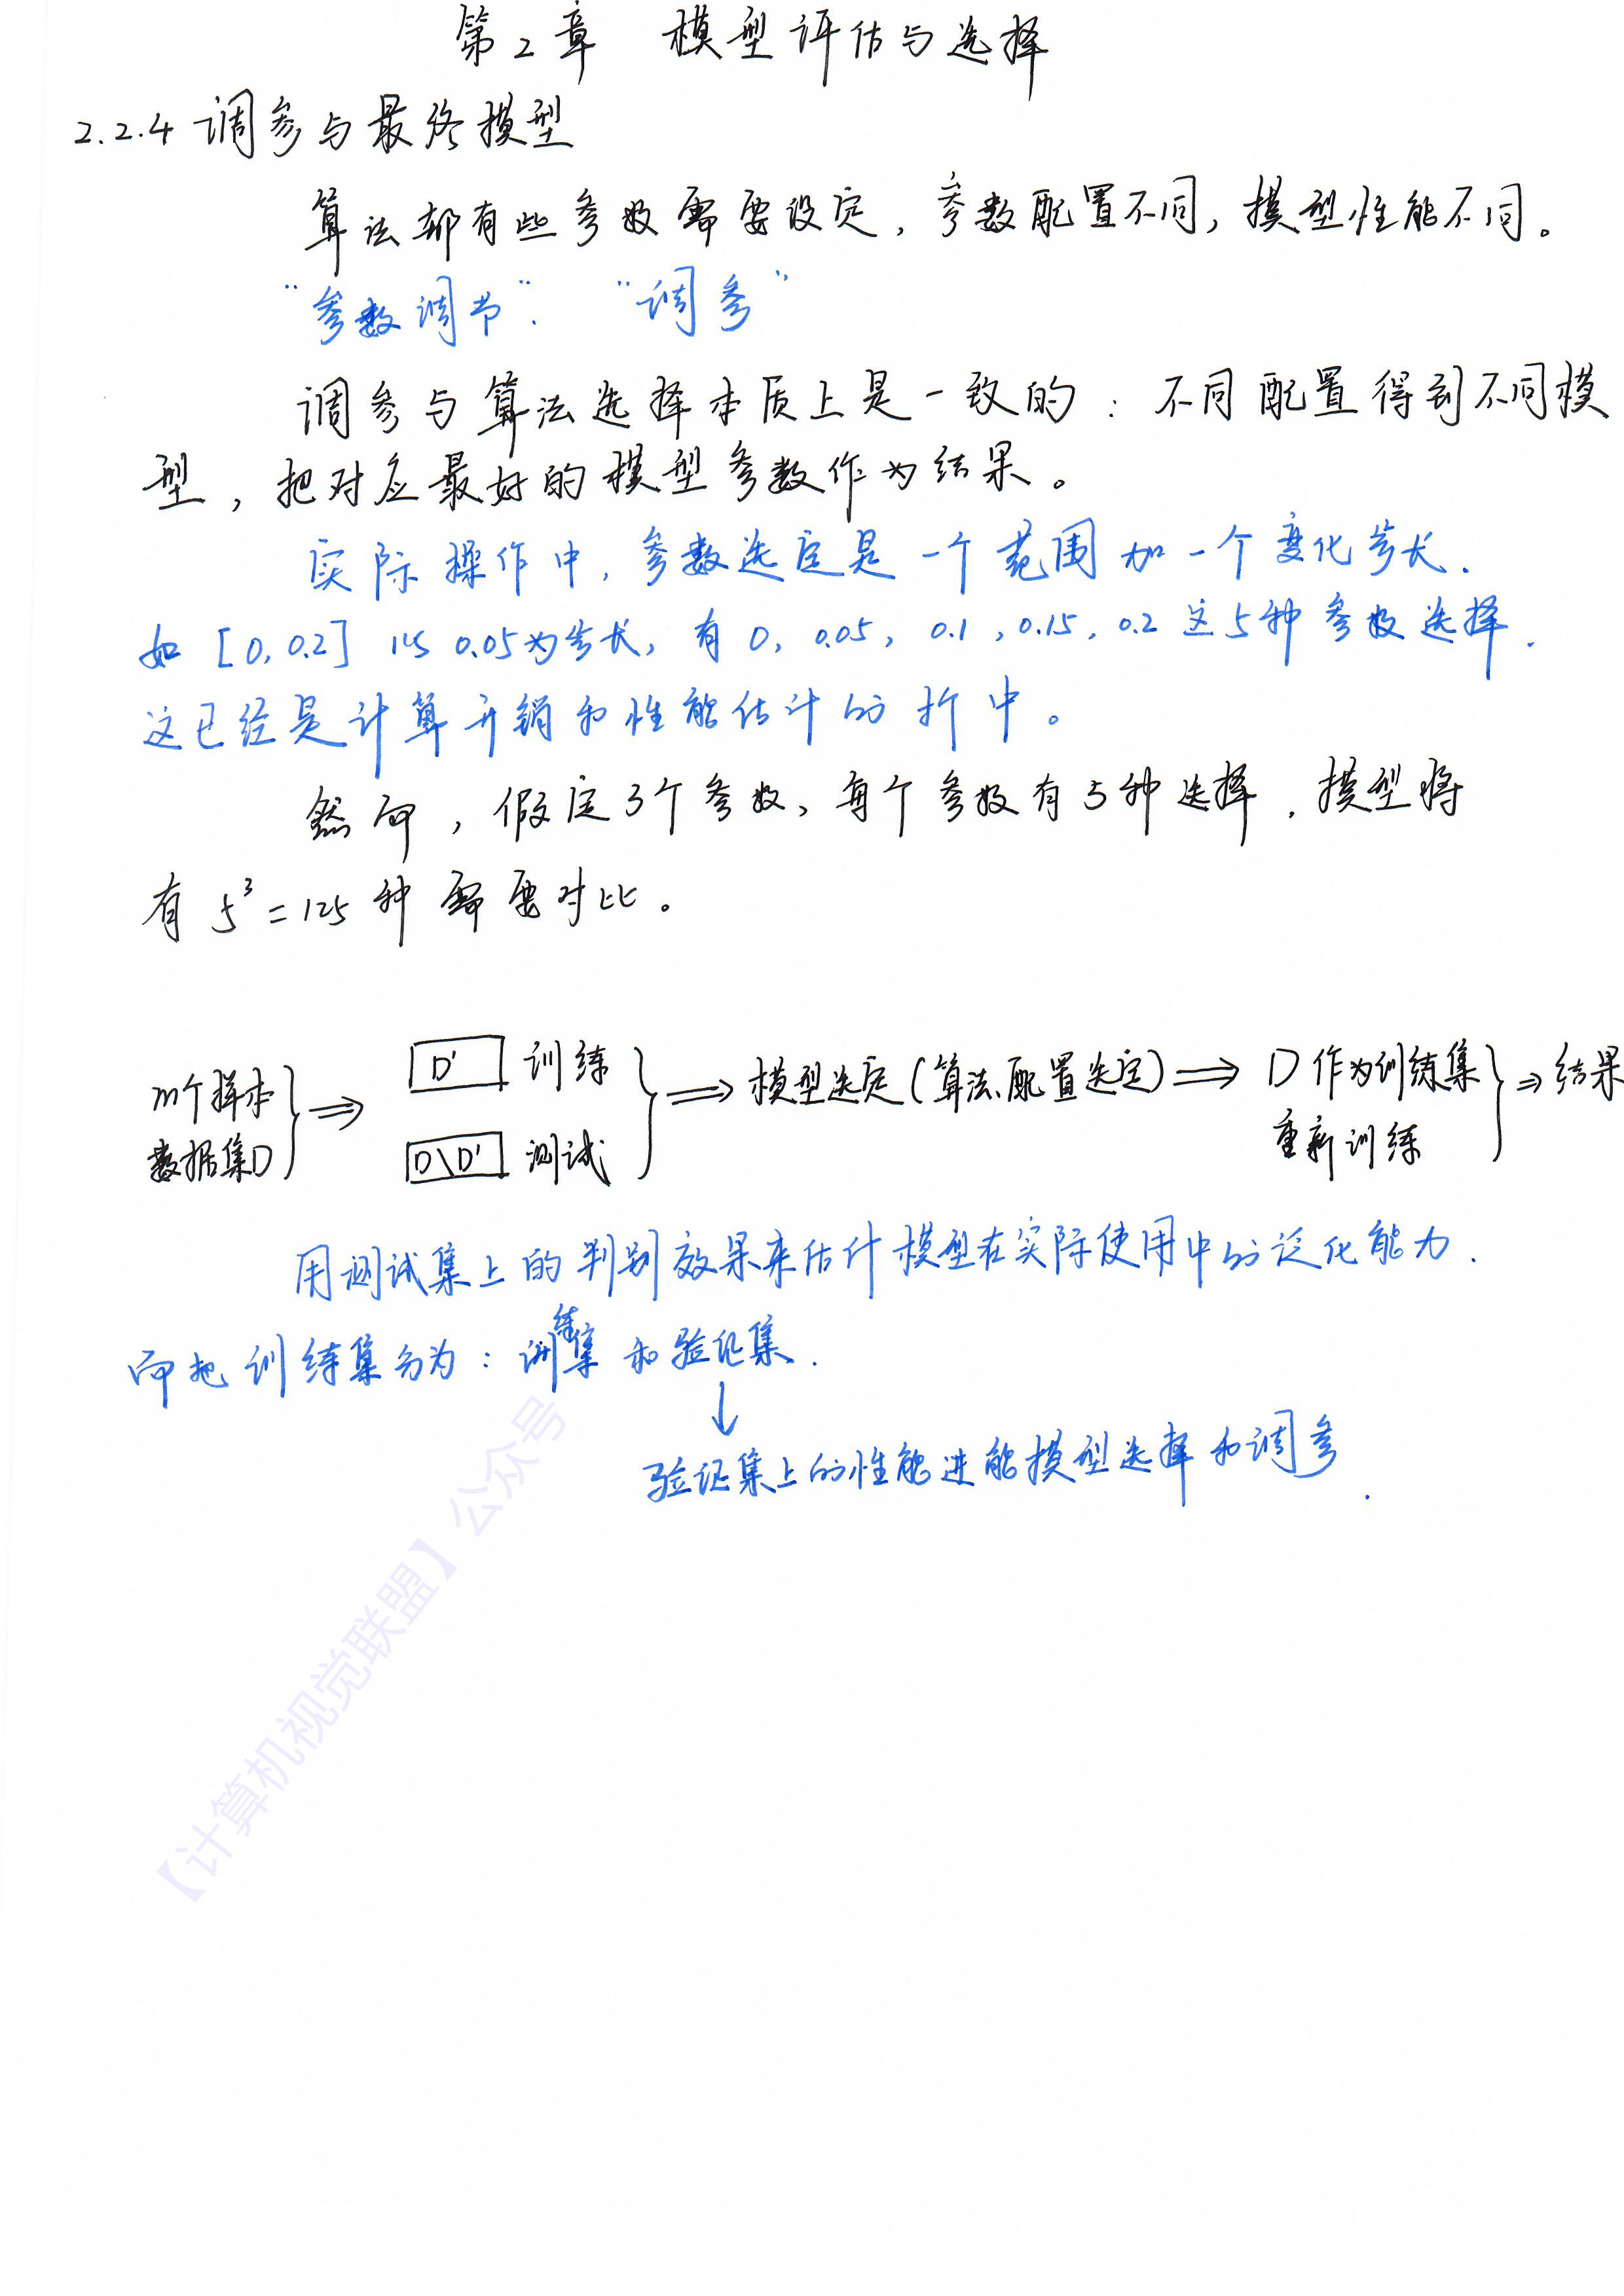 第2章 模型评估与选择
2.2.4 调参与最终模型
算法都有些参数需要设定，参数配置不同，模型性能不同。
“参数调节”. “调参”
调参与算法选择本质上是一致的：不同配置得到不同模
型，把对应最好的模型参数作为结果。
实际操作中，参数选定是一个范围加一个变化步长.
如 [0, 0.2] 以 0.05为步长，有 0, 0.05, 0.1, 0.15, 0.2 这5种参数选择.
这已经是计算开销和性能估计的折中。
然而，假定3个参数，每个参数有5种选择. 模型将
有 5³=125 种需要对比。
m个样本
数据集D
⇒
D' 训练
D\D' 测试
⇒ 模型选定（算法、配置选定）⇒
D 作为训练集
重新训练
⇒ 结果
用测试集上的判别效果来估计模型在实际使用中的泛化能力.
而把训练集分为：训练集和验证集.
↓
验证集上的性能进能模型选择和调参.
【计算机视觉联盟】公众号